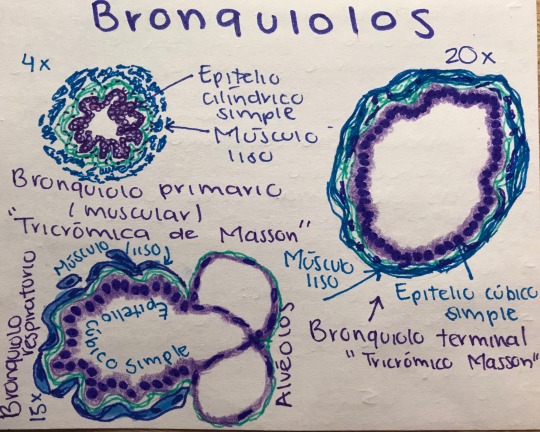 Bronquiolos
4x
Epitelio
cilíndrico
simple
Músculo
liso
Bronquiolo primario
(muscular)
"Tricrómica de Masson"
20x
Músculo
liso
Epitelio cúbico
simple
Bronquiolo terminal
"Tricrómico Masson"
Músculo liso
Epitelio
cúbico simple
Bronquiolo
respiratorio
15x
Alveolos